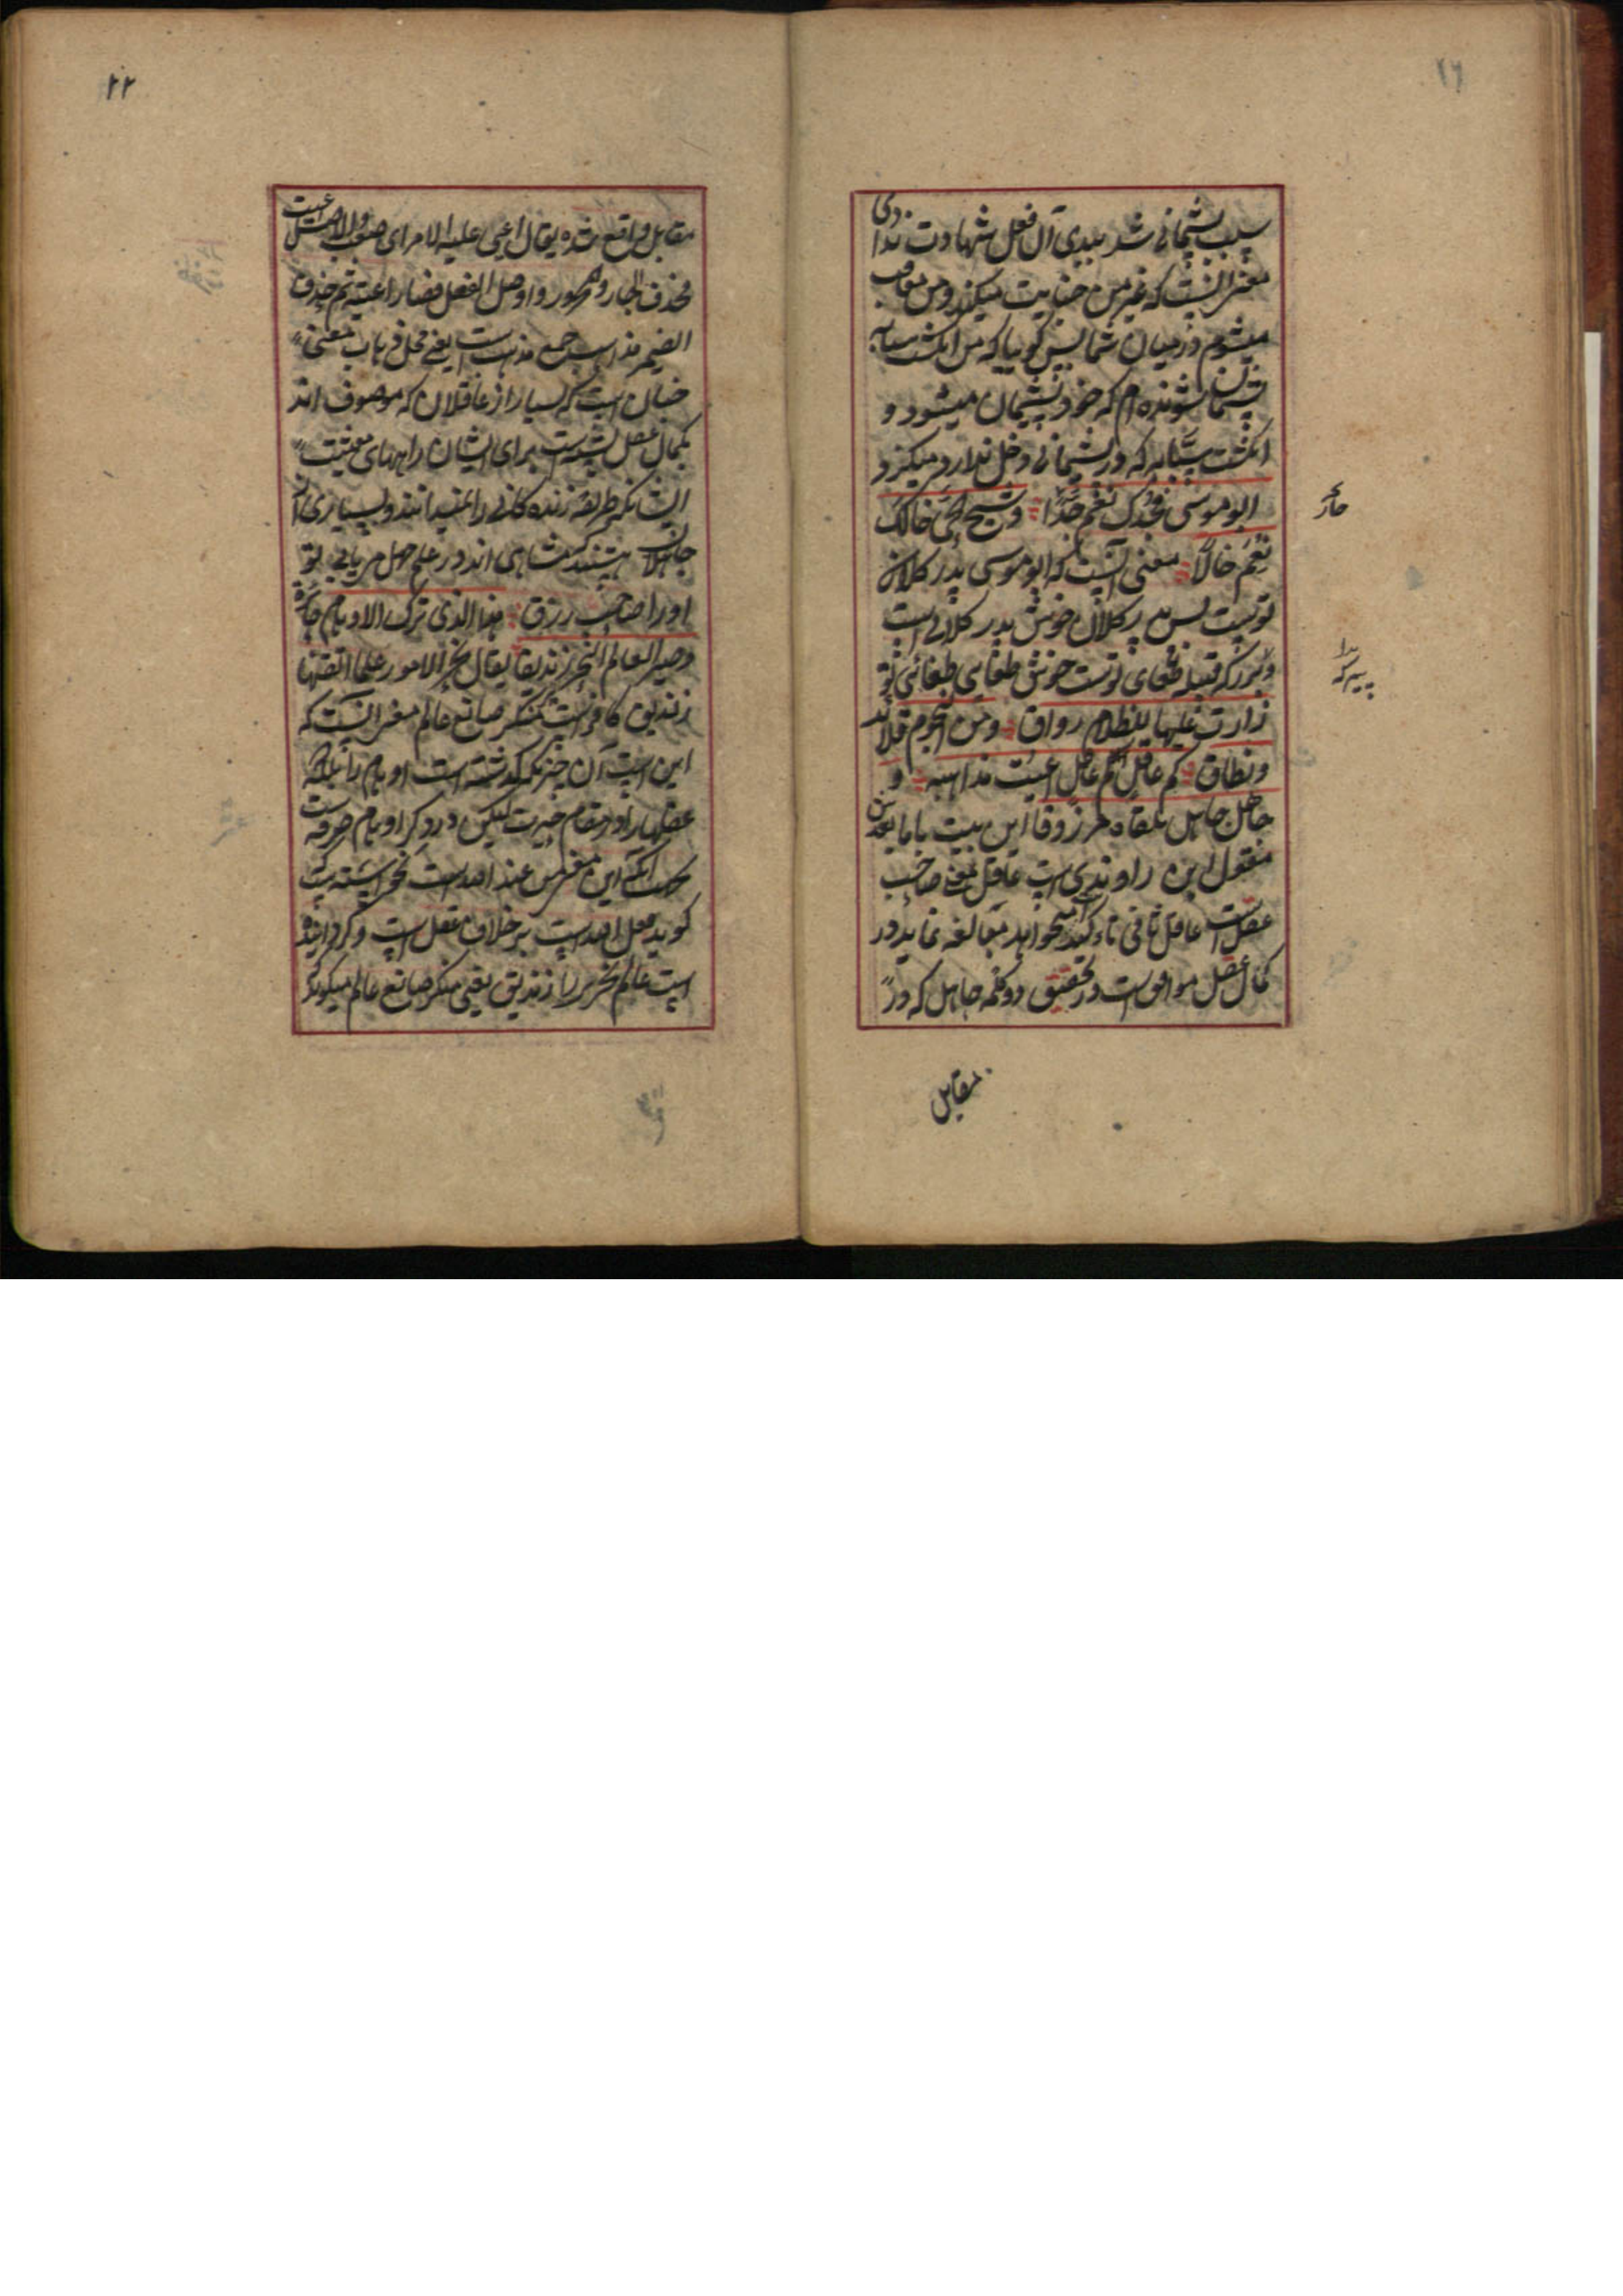 سبب پشیمانی شد بیدی آن فعل شهادت ندا
معنی آنست که غیر من جنایت میکند و من معاقب
میشوم در میان شما پس گویا که من انگشت سبابه
پشیمان شونده ام که خود پشیمان میشود و
انگشت سبابه که در پشیمانی دخل ندارد میگزد
ابو موسی فجدک نعم جدا و شیخ الحی خالک
نعم خالا معنی آنست که ابو موسی پدر کلان
تو است پس پدر کلان خوش پدر کلانی است
و بزرگ قبیله طغای تو است خوش طغای طغائی تو
زارت علیها للظلام رواق و من النجوم قلائد
و نطاق کم عاقل کم عاقل اعیت مذاهبه و
جاهل جاهل تلقاه مرزوقا این بیت با ما بعدش
مقول ابن راوندی است عاقل یعنی صاحب
عقل است عاقل ثانی تاکید میخواهد مبالغه نماید در
کمال عقل موافق است در تحقیق دو کلمه جاهل که در
مقابل
مقابل واقع شده یقال اعیی علیه الامر ای صعب والاصل اعیت
فحذف الجار والمجرور و اوصل الفعل فصار اعیته ثم حذف
الضمیر مذاهب جمع مذهب است یعنی محل ذهاب معنی
چنان است که بسیار از عاقلان که موصوف اند
بکمال عقل برای ایشان راههای معیشت
ایشان که طریقه زنده گانی را نمیدانند و بسیاری از
جاهلان هستند که متناهی اند در علم جهل می یابی تو
او را صاحب رزق هذا الذی ترک الاوهام حائرة
و صیر العالم النحریر زندیقا یقال نحر الامور علما اتقنها
زندیق کافر است منکر صانع عالم معنی آنست که
این است آن چیز که گذاشته است اوهام را بلکه
عقلها را در مقام حیرت لیکن در ذکر اوهام صرفه است
گوید فعل الله است بر خلاف عقل است و گردانیده
است عالم نحریر را زندیق یعنی منکر صانع عالم میگویند